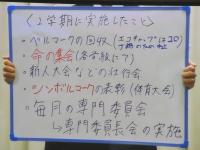 〈2学期に実施したこと〉
・ベルマークの回収(エコキャップは
・命の集会(各学級にて)
・新人大会などの壮行会
・シンボルマークの表彰(体育大会)
・毎月の専門委員会
↳専門委員長会の実施